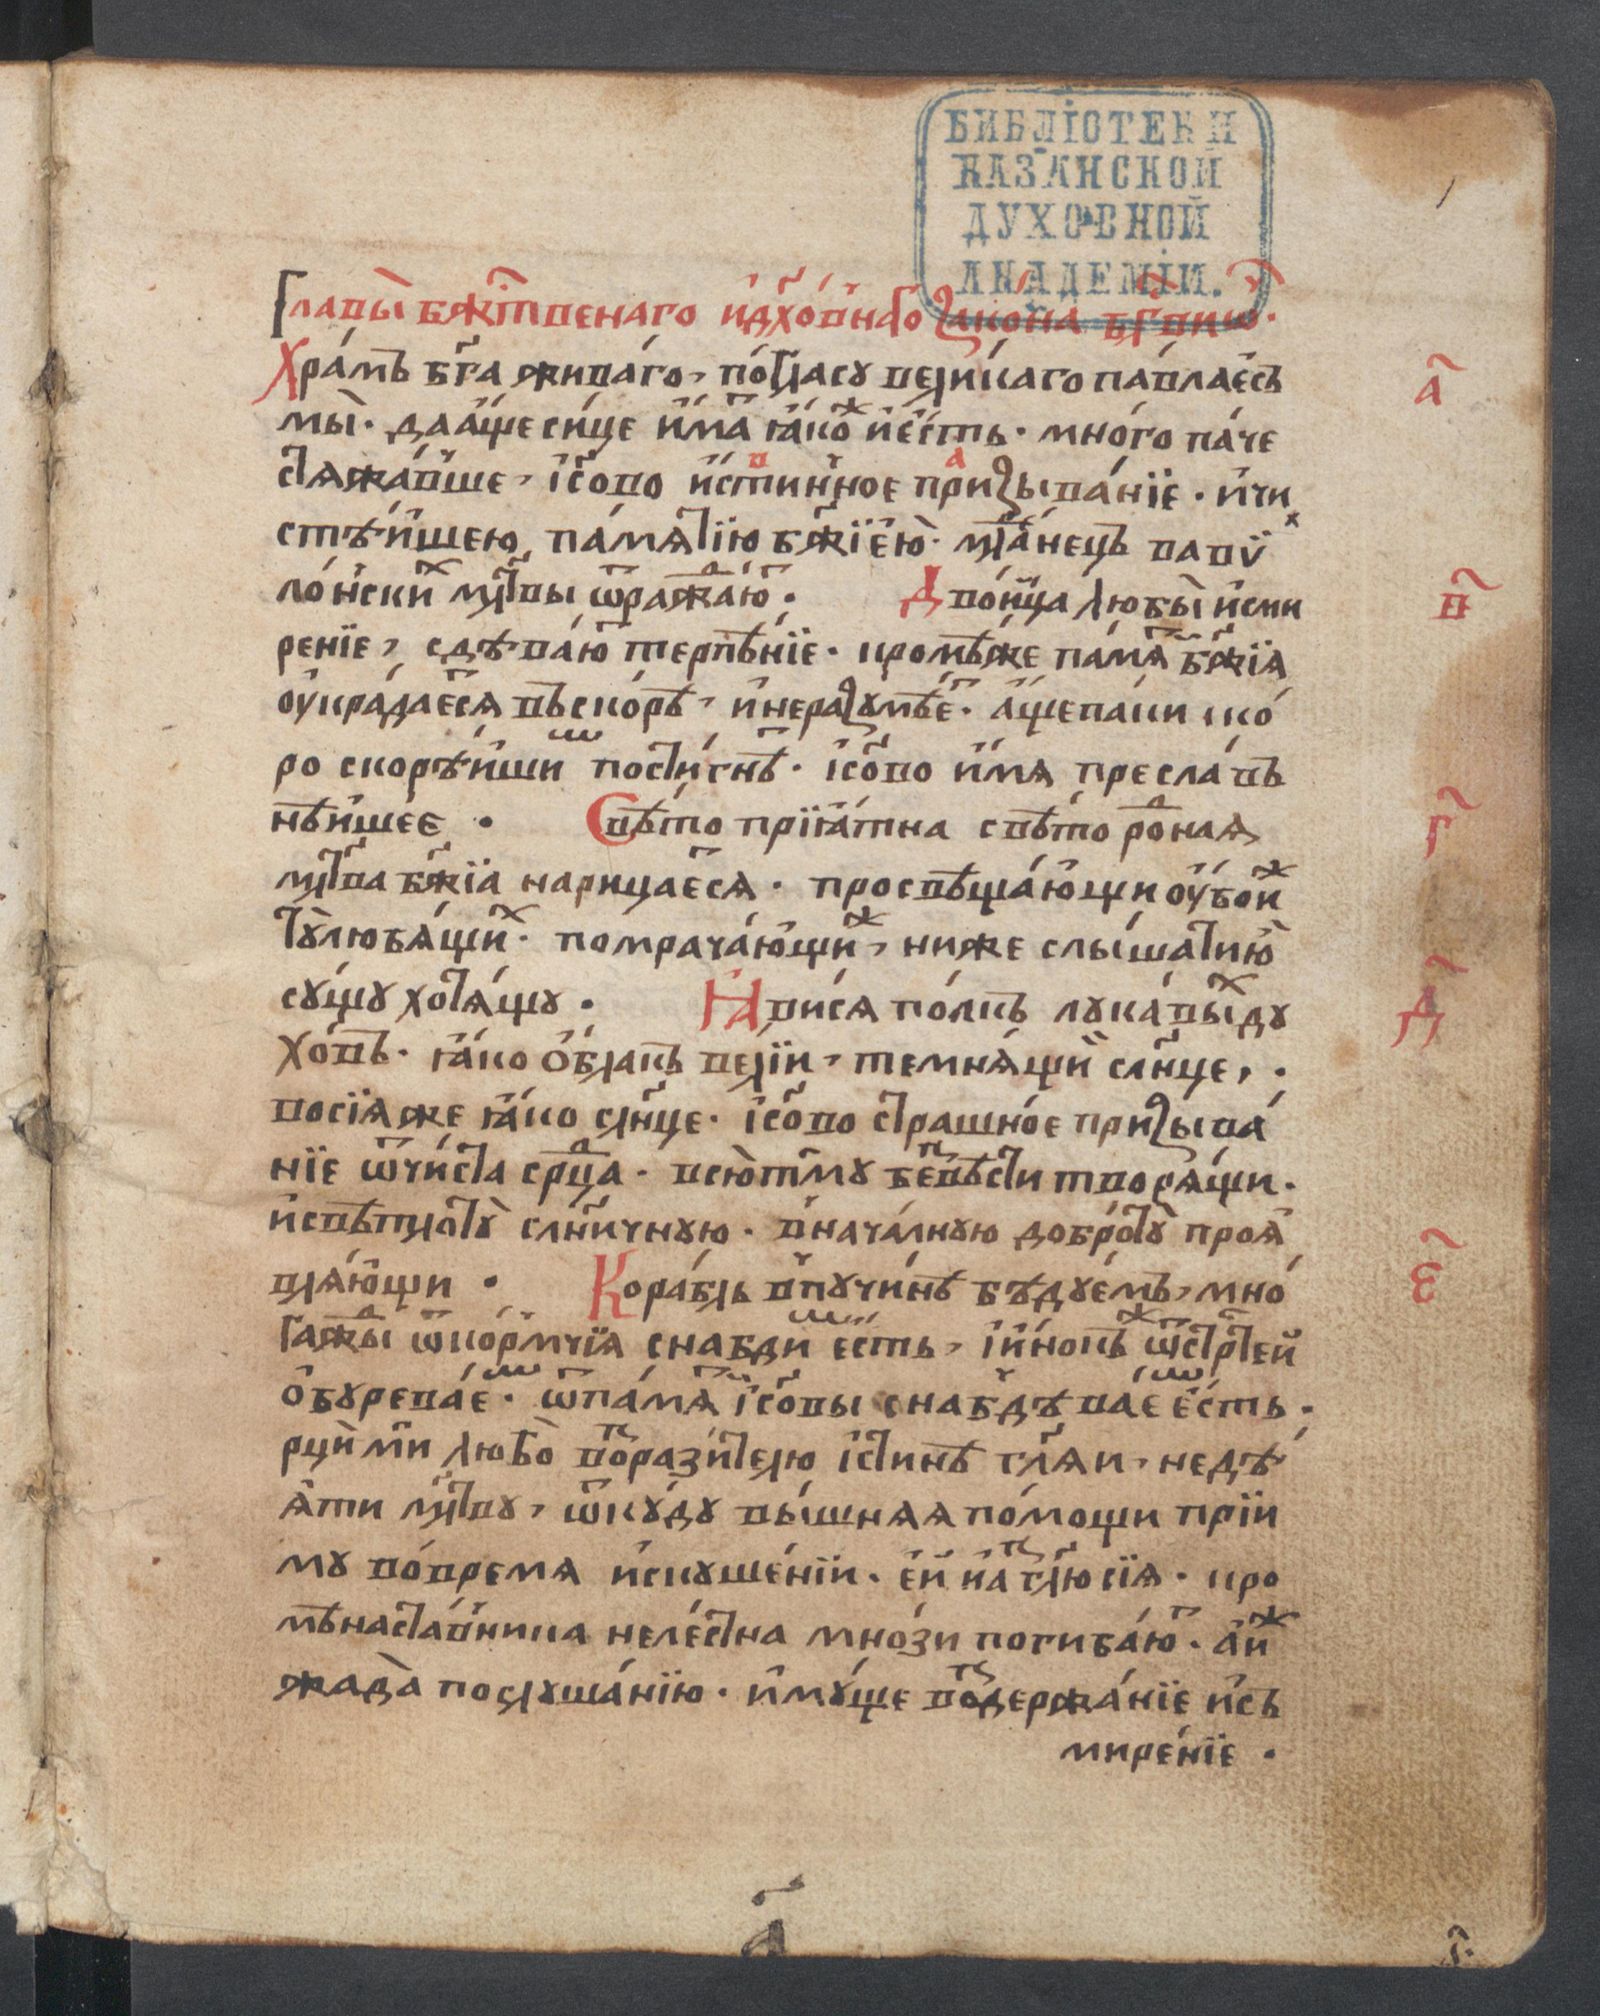 БИБЛІОТЕКИ
КАЗАНСКОЙ
ДУХОВНОЙ
АКАДЕМІИ.
Главы̀ бж҃твенаго и҆дх҃о́внаго зако́на
Хра́мъ бг҃а жива́го, по гла́су вели́каго павла є҆съ
мы̀. да а҆́ще си́це и҆́ма ꙗ҆́коⷤ и҆ є҆́сть. мно́го па́че
стяжа́вше, і҆сⷭ҇ово и҆́стинное призыва́нїе. и҆ чи
стѣ́йшею па́мятїю бж҃їею. младе́нецъ вавѷ
ло́нскиⷯ мл҃твы ѿражда́юⷮ. Дво́ица любы̀ и҆ сми
ре́нїе, сдѣва́юⷮ терпѣ́нїе. кромѣ́же па́мяⷮ бж҃їя
ᲂу҆кра́даеⷮся въско́рѣ, и҆ неразꙋмѣ́еⷮ. а҆́ще паки ско́
ро скорѣ́йши пости́гнѣⷲ. і҆сⷭ҇ово и҆́мя пресла́въ
нѣ́йшее. Свѣ́то прїꙗ́тна свѣ́то роⷣная
мл҃тва бж҃їа нарица́еⷮся. просвѣща́ющи ᲂу҆́бо иⷤ
тꙋ̀ лю́бящиⷯ. помрача́ющиⷤ, ниже слы́шати ю҆̀
сꙋ́щꙋ хотя́щꙋ. Ꙗ҆ви́ся по́лкъ лꙋка́выⷯ дꙋ
хо́въ. ꙗ҆́ко ѻ҆́блакъ ве́лїи, темня́щи сл҃нце.
восїя́ же ꙗ҆́ко сл҃нце. і҆сⷭ҇ово стра́шное призыва́
нїе ѿ чи́ста срⷣца. всю̀ тмꙋ беⷥвѣ́сти творя́щи.
и҆ свѣ́тлотꙋ̀ сл҃ничнꙋю. внача́лнꙋю добротꙋ̀ проя
вля́ющи. Кора́бль в пꙋчи́нѣ бѣдꙋ́емъ, мно́
гаⷤды ѿ ко́рмчїя снабдиⷲ е҆́сть, и҆ и҆́нокъ ѿ страсте́й
ѻ҆бꙋрева́еⷨ. ѿ па́мяⷮи і҆сⷭ҇овы снабдѣва́еⷨ е҆́сть.
рци́ ми любо̀ воⷥрази́телю и҆́стинѣ гл҃яи, не дѣ
яти мл҃твꙋ, ѿкꙋ́дꙋ вы́шняя по́мощи прїи
мꙋ во́время и҆скꙋше́нїи. е҆́й и҆ а҆́зъ гл҃ю сїя. кро
мѣ наста́вника неле́стна мно́зи погиба́юⷮ. а҆ иⷤ
жада̀ послꙋша́нїю. и҆мꙋ́ще воⷥдержа́нїе и҆ съ
мире́нїе.
а҃
в҃
г҃
д҃
є҃